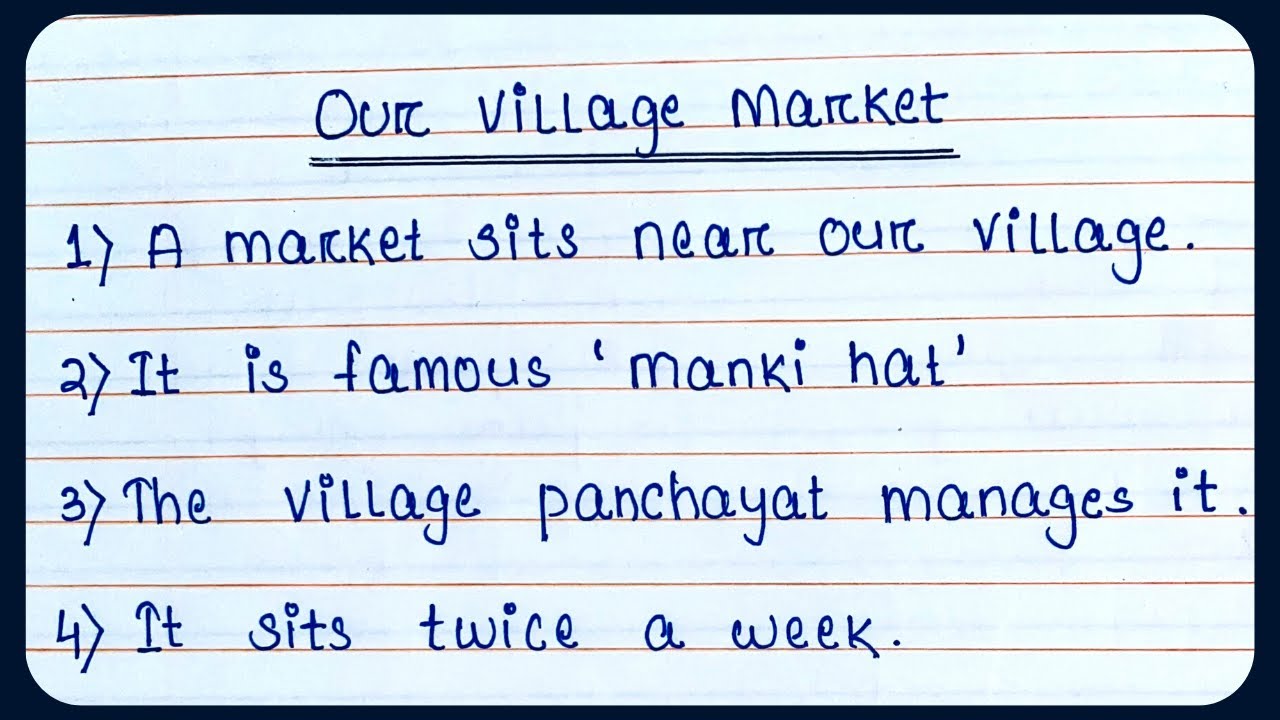 Our Village Market
1) A market sits near our village.
2) It is famous 'manki hat'
3) The village panchayat manages it.
4) It sits twice a week.